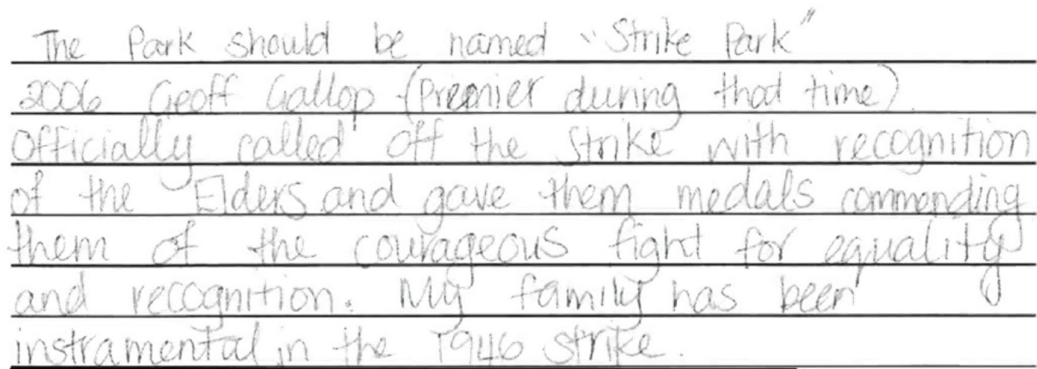 The Park should be named "Strike Park"
2006 Geoff Gallop (Premier during that time)
Officially called off the strike with recognition
of the Elders and gave them medals commending
them of the courageous fight for equality
and recognition. My family has been
instramental in the 1946 strike.